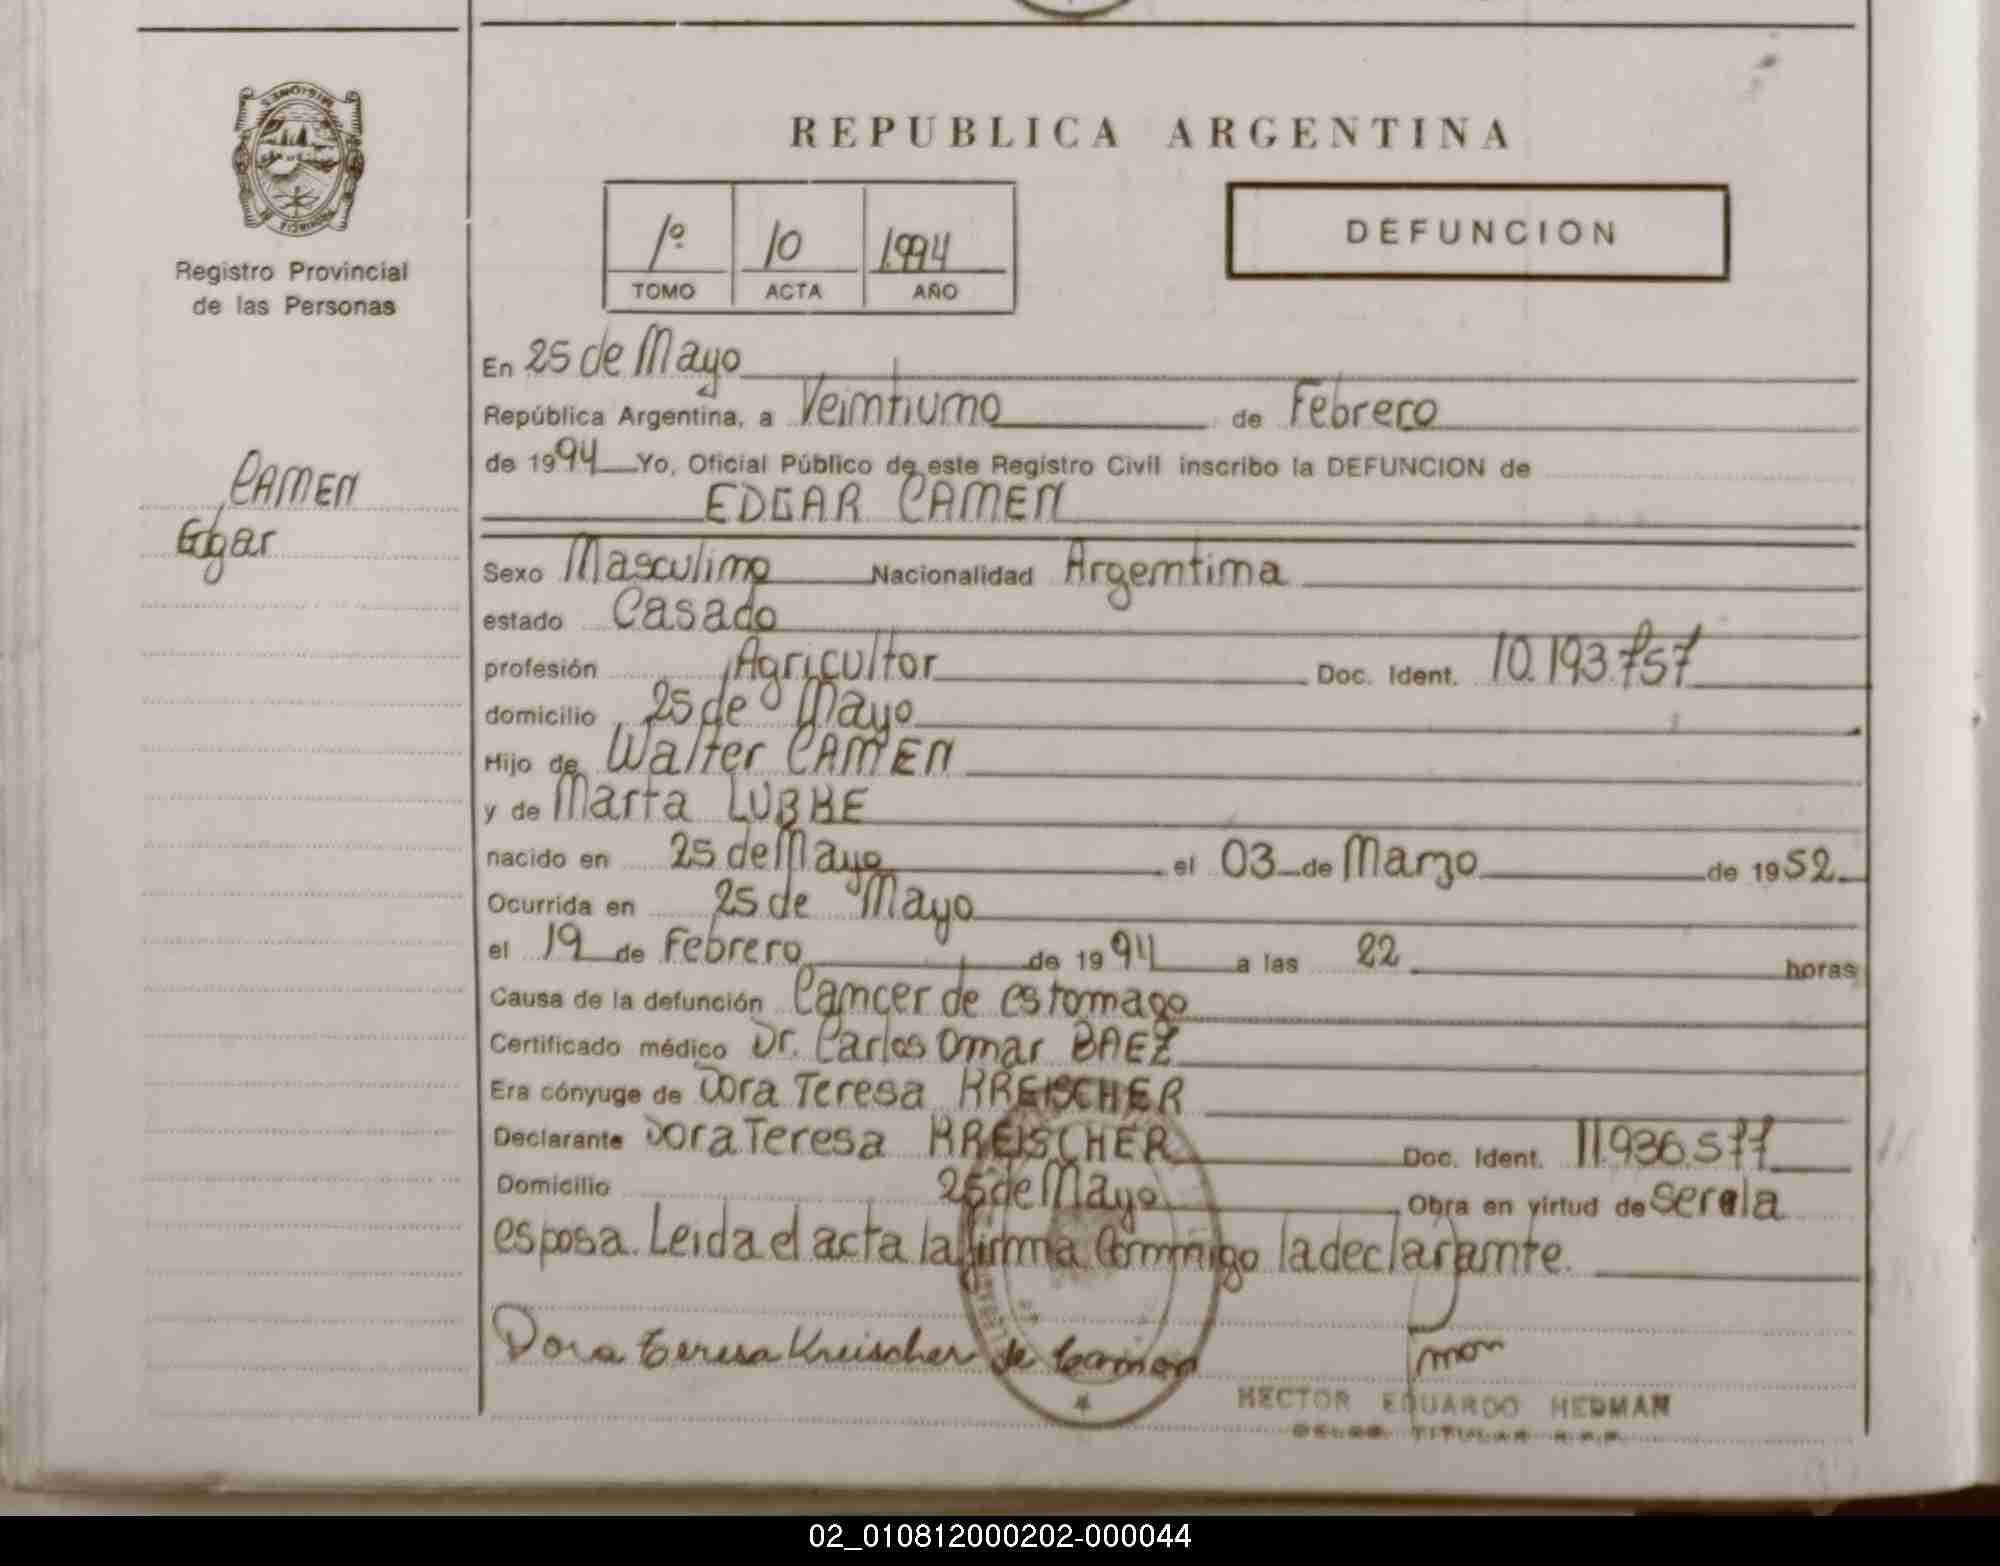 MISIONES
PROVINCIA DE
Registro Provincial
de las Personas
CAMEN
Edgar
REPUBLICA ARGENTINA
1º 10 1.994
TOMO ACTA AÑO
DEFUNCION
En 25 de Mayo
República Argentina, a Veintiuno de Febrero
de 1994 Yo, Oficial Público de este Registro Civil inscribo la DEFUNCION de
EDGAR CAMEN
Sexo Masculino Nacionalidad Argentina
estado Casado
profesión Agricultor Doc. Ident. 10.193.757
domicilio 25 de Mayo
Hijo de Walter CAMEN
y de Marta LUBKE
nacido en 25 de Mayo el 03 de Marzo de 1952
Ocurrida en 25 de Mayo
el 19 de Febrero de 1994 a las 22 horas
Causa de la defunción Cancer de estomago
Certificado médico Dr. Carlos Omar BAEZ
Era cónyuge de Dora Teresa KREISCHER
Declarante Dora Teresa KREISCHER Doc. Ident. 11.936.577
Domicilio 25 de Mayo Obra en virtud de ser la
esposa. Leida el acta la firma Conmigo la declarante.
Dora Teresa Kreischer de Camen
HECTOR EDUARDO HEDMAN
TITULAR R.P.P.
02_010812000202-000044